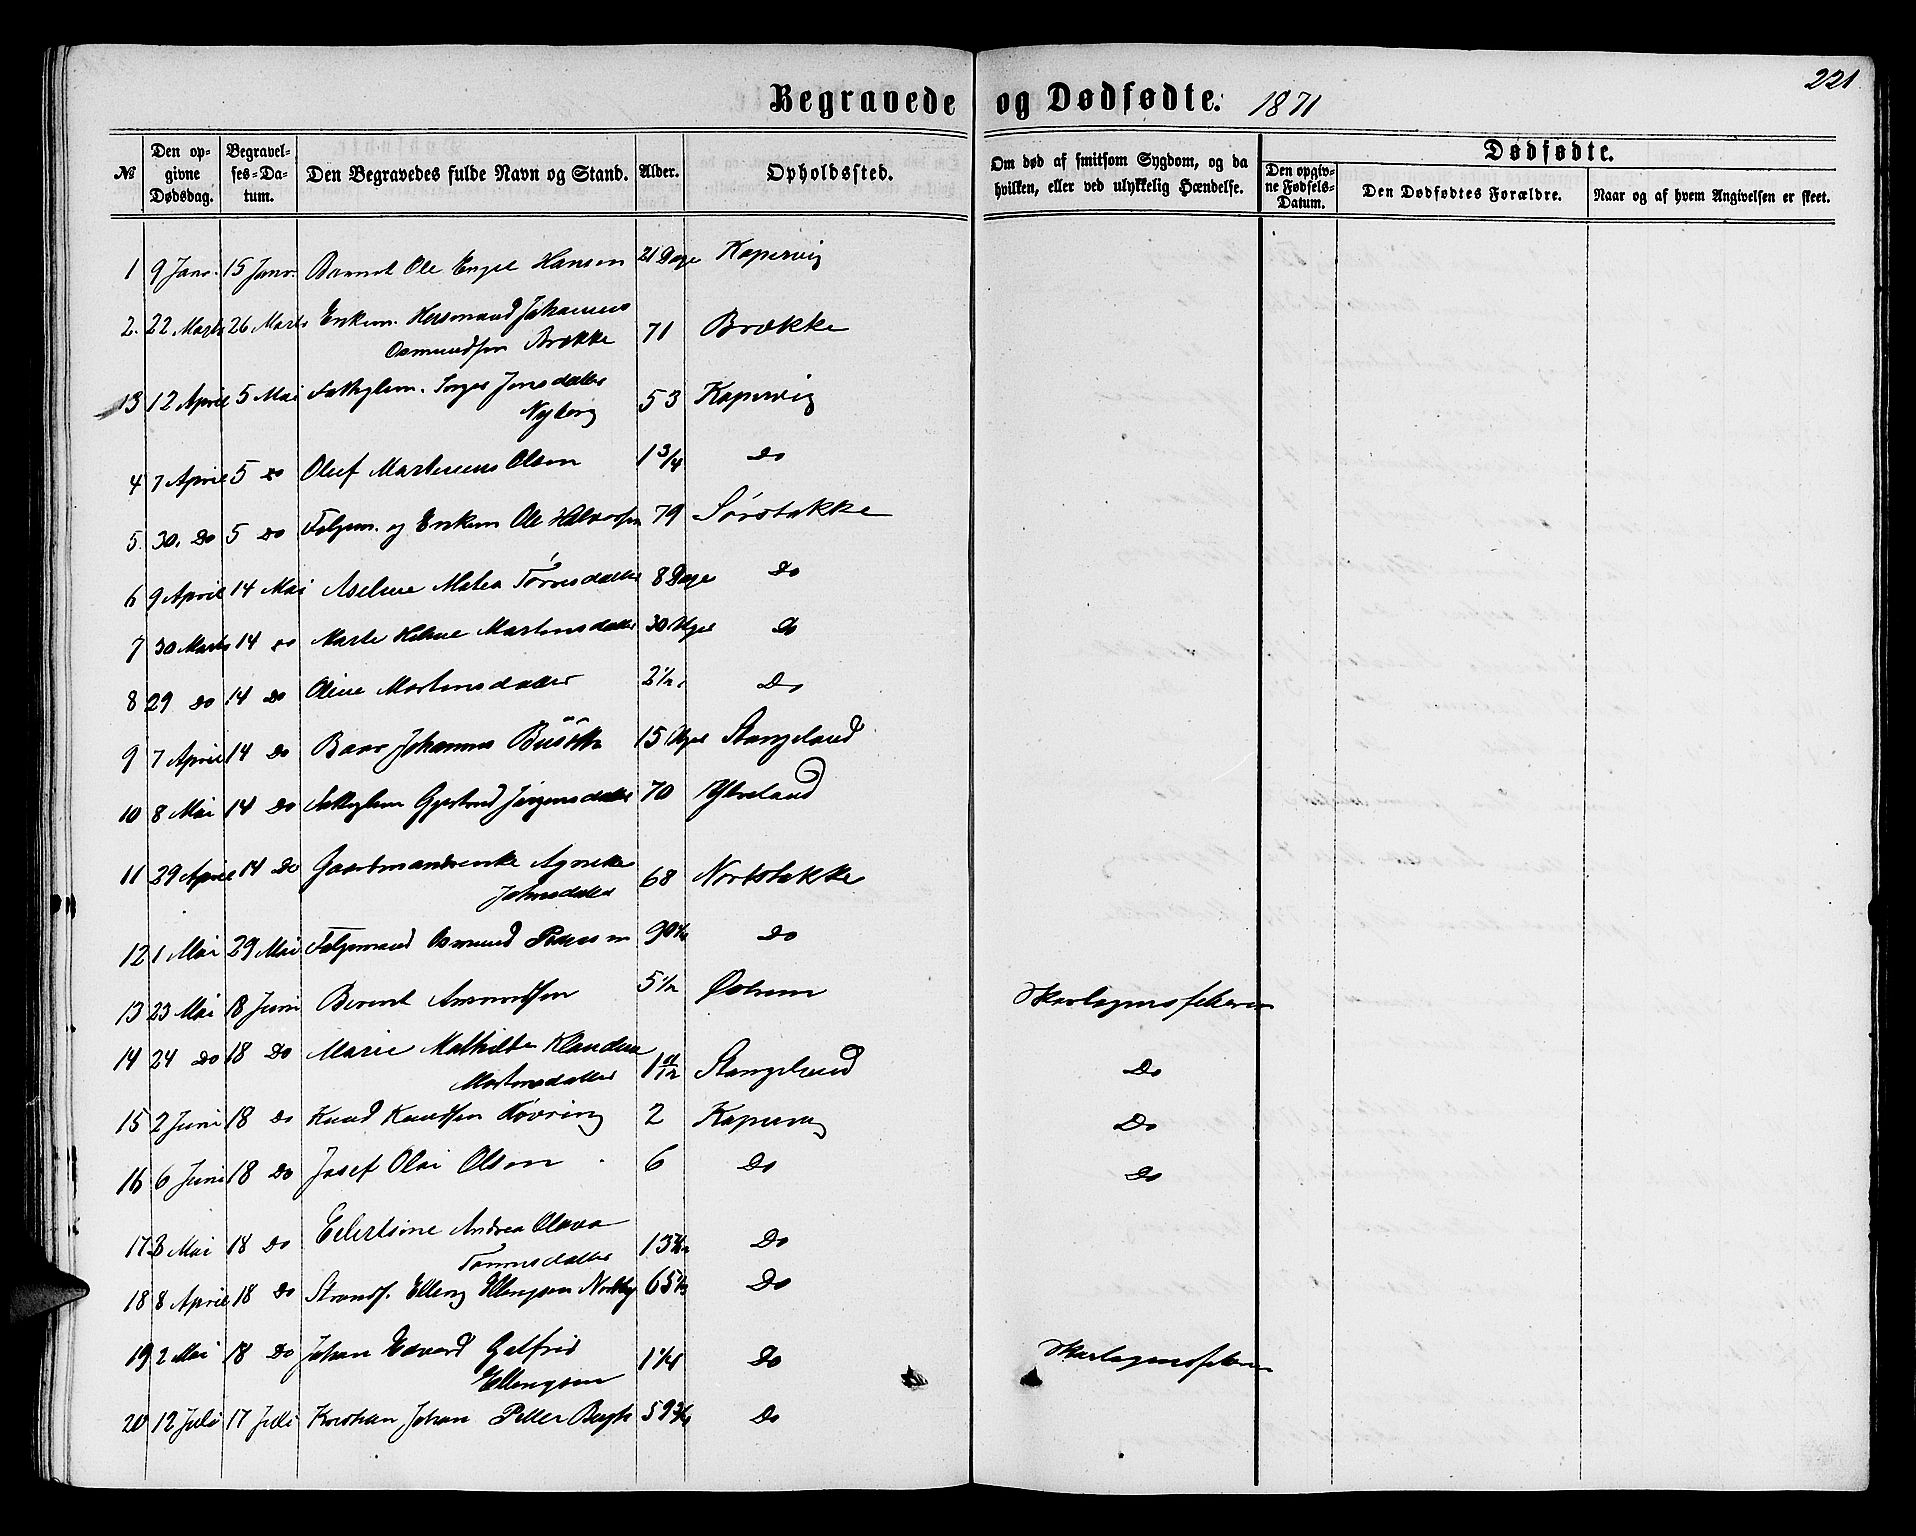 221
Begravede og Dødfødte. 1871
№ Den opgivne Dødsdag. Begravelses-Datum. Den Begravedes fulde Navn og Stand. Alder. Opholdssted. Om død af smitsom Sygdom, og da hvilken, eller ved ulykkelig Hændelse. Dødfødte.
Den opgivne Fødsels-Datum. Den Dødfødtes Forældre. Naar og af hvem Angivelsen er skeet.
1 9 Janr. 15 Janr. Barnet Ole Engel Hansen 21 Dage Kopervig
2. 22 Marts 26 Marts Enkem. Hersmand Johannes
Osmundsen Brække 71 Brække
3 12 April 5 Mai Fattiglem. Jonsdatter
Nyborg 53 Kopervig
4 7 April 5 do Oluf Martinius Olsen 1 3/4 Do
5 30. Do 5 Do Folgem. og Enkem Ole Halvorsen 79 Sørstokke
6 9 April 14 Mai Aseline Matea Tørresdatter 8 Dage Do
7 30 Marts 14 do Marte Helene Mortensdatter 30 Uger Do
8 29 Do 14 Do Oline Mortensdatter 2 1/2 Do
9 7 April 14 Do Johannes 15 Uger Stangeland
10 8 Mai 14 Do Fattiglem Gjertrud Jørgensdatter 70 Ytreland
11 29 April 14 Do Gaardmandsenke Agnethe
Johnsdatter 68 Nordstokke
12 1 Mai 29 Mai Folgemand Osmund Pedersen 90 Do
13 23 Mai 18 Juni Berent Asmundsen 5 1/2 Østrem Skarlagensfeber
14 24 Do 18 Do Marie Mathilde Klaudine
Mortensdatter 1 11/12 Stangeland Do
15 2 Juni 18 Do Knud Knudsen Nøvring 2 Kopervig Do
16 6 Juni 18 Do Josef Olai Olsen 6 Do Do
17 3 Mai 18 Do Eilertsine Andrea Olava
Tønnesdatter 13 Do
18 8 April 18 Do Strands. Elling Ellingsen Nordby 65 Do
19 2 Mai 18 Do Johan Edvard Gotfried
Ellingsen 1 1/4 Do Skarlagensfeber
20 12 Juli 17 Juli Johan Petter 59 Do